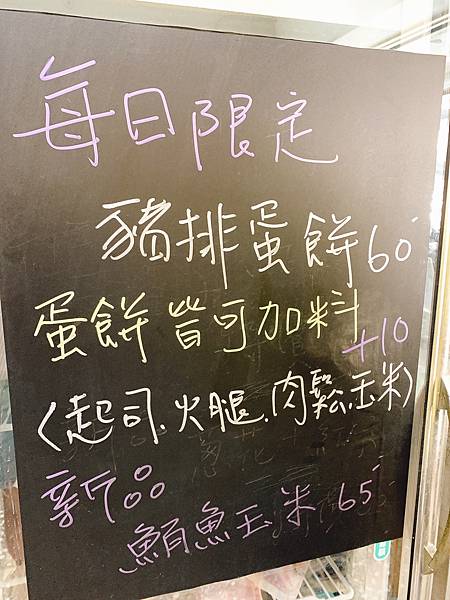 每日限定
豬排蛋餅60
蛋餅皆可加料
+10
(起司.火腿.肉鬆.玉米)
新品
鮪魚玉米 65